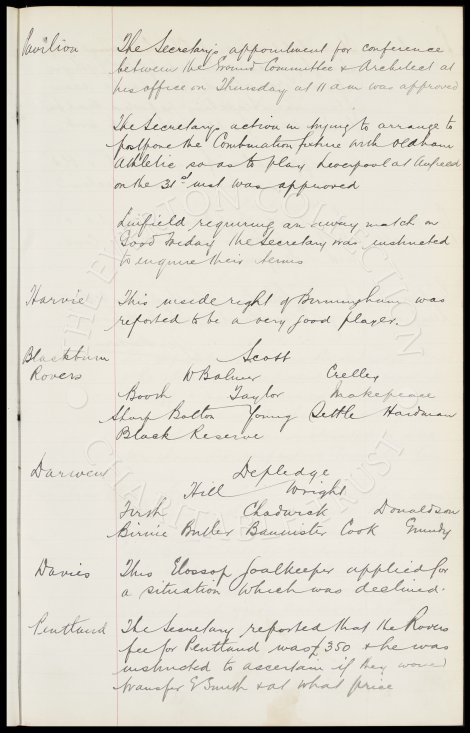 Pavilion The Secretary's appointment for conference
between the Ground Committee & Architect at
his office on Thursday at 11 a.m was approved
The Secretary's action in trying to arrange to
postpone the Combination fixture with Oldham
Athletic so as to play Liverpool at Anfield
on the 31st inst was approved
Linfield requiring an away match on
Good Friday the Secretary was instructed
to enquire their terms
Harvie This inside right of Birmingham was
reported to be a very good player.
Blackburn Scott
Rovers W Balmer Crelley
Booth Taylor Makepeace
Sharp Bolton Young Settle Hardman
Black Reserve
Darwen Depledge
Hill Wright
Chadwick Donaldson
Birnie Butler Bannister Cook Grundy
Davies This Glossop Goalkeeper applied for
a situation which was declined.
Pentland The Secretary reported that the Rovers
fee for Pentland was £350 & he was
instructed to ascertain if they would
transfer E Smith & at what price
THE EVERTON COLLECTION
CHARITABLE TRUST